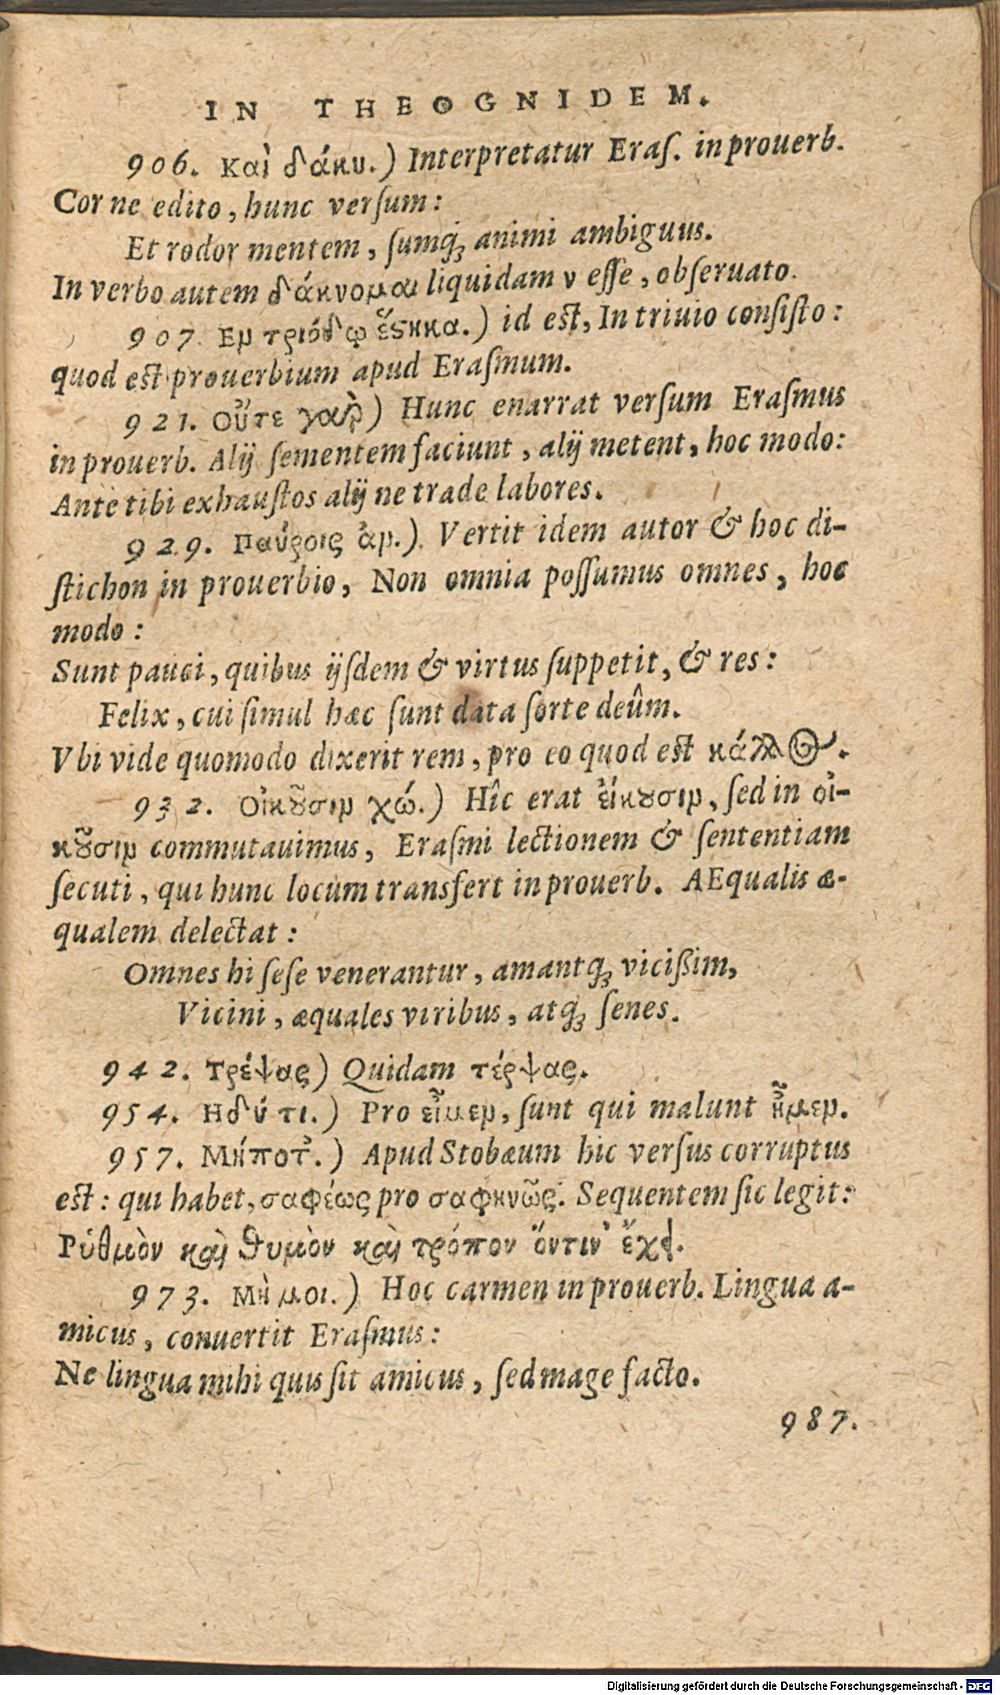 IN THEOGNIDEM.
906. Καὶ δάκν.) Interpretatur Eraſ. in prouerb.
Cor ne edito, hunc verſum:
Et rodor mentem, ſumq́; animi ambiguus.
In verbo autem δάκνομαι liquidam ν eſſe, obſeruato.
907. Εν τριόδῳ ἕςηκα.) id est, In triuio conſiſto:
quod est prouerbium apud Eraſmum.
921. Οὔτε γαὰρ) Hunc enarrat verſum Eraſmus
in prouerb. Alij ſementem faciunt, alij metent, hoc modo:
Ante tibi exhauſtos alij ne trade labores.
929. Παύροις ἀν.) Vertit idem autor & hoc di-
ſtichon in prouerbio, Non omnia poſſumus omnes, hoc
modo:
Sunt pauci, quibus ijſdem & virtus ſuppetit, & res:
Felix, cui ſimul hæc ſunt data ſorte deûm.
Vbi vide quomodo dixerit rem, pro eo quod est κάλλος.
932. Οἰκοῦσιν χώ.) Hîc erat εἴκουσιν, ſed in οἰ-
κοῦσιν commutauimus, Eraſmi lectionem & ſententiam
ſecuti, qui hunc locum transfert in prouerb. AEqualis æ-
qualem delectat:
Omnes hi ſeſe venerantur, amantq́; viciſſim,
Vicini, æquales viribus, atq́; ſenes.
942. Τρέψας) Quidam τέρψας.
954. Ηδύ τι.) Pro εἶμεν, ſunt qui malunt ἦμεν.
957. Μήποτ'.) Apud Stobæum hic verſus corruptus
est: qui habet, σαφέως pro σαφηνῶς. Sequentem ſic legit:
Ρύθμὸν καὶ θυμὸν καὶ τρόπον ὅντιν' ἔχῃ.
973. Μή μοι.) Hoc carmen in prouerb. Lingua a-
micus, conuertit Eraſmus:
Ne lingua mihi quis ſit amicus, ſed mage facto.
987.
Digitalisierung gefördert durch die Deutsche Forschungsgemeinschaft - DFG